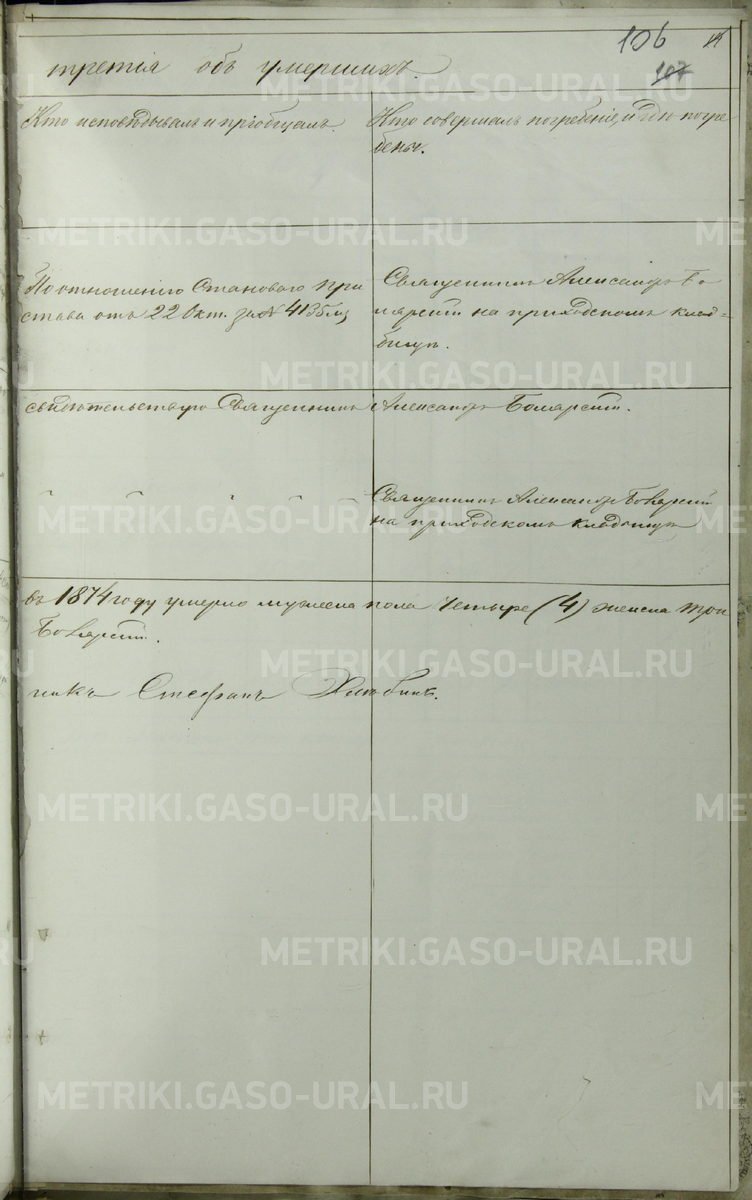 106
107
третія объ умершихъ.
Кто исповѣдывалъ и пріобщалъ.
Кто совершалъ погребеніе, и гдѣ погре
бены.
По отношенію Становаго При
става отъ 22 Окт. за № 4135
Священникъ Александръ Бо
ярскій на приходскомъ клад=
бищѣ.
свидѣтельствую Священникъ Александръ Боярскій.
Священникъ Александръ Боярскій
на приходскомъ кладбищѣ
въ 1874 году умерло мужеска пола четыре (4) женска три
Боярскій.
никъ Стефанъ Хлюбинъ.
METRIKI.GASO-URAL.RU